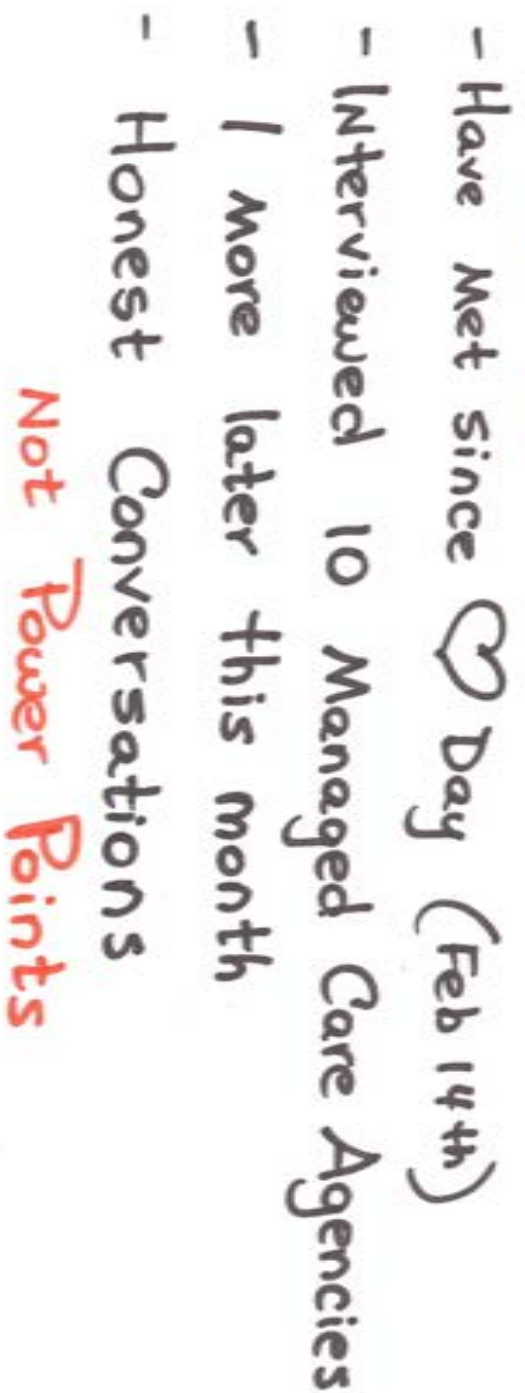 - Have Met since ♡ Day (Feb 14th)
- Interviewed 10 Managed Care Agencies
- 1 More later this month
- Honest Conversations
Not Power Points